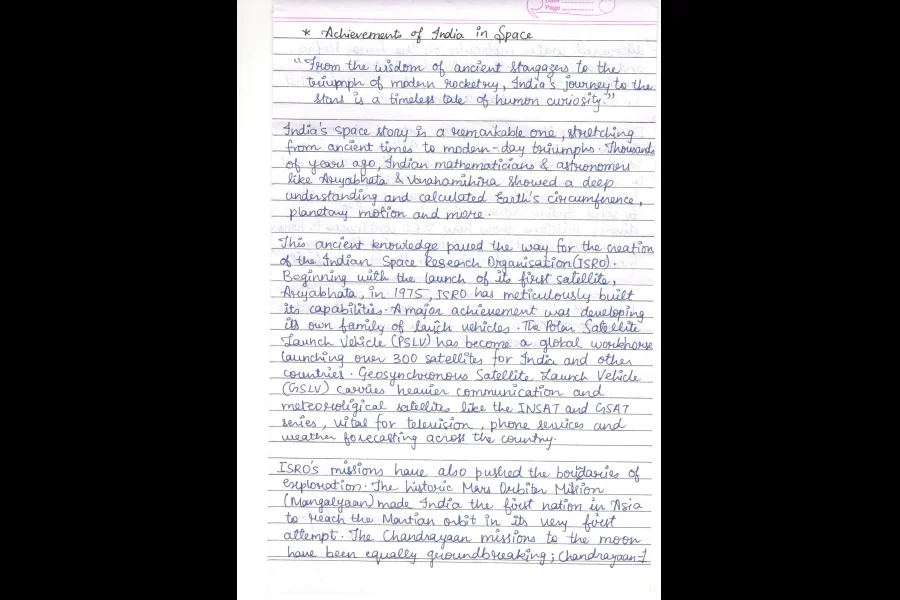 Date
Page
* Achievements of India in Space
"From the wisdom of ancient stargazers to the
triumph of modern rocketry, India's journey to the
stars is a timeless tale of human curiosity."
India's space story is a remarkable one, stretching
from ancient times to modern-day triumphs. Thousands
of years ago, Indian mathematicians & astronomers
like Aryabhata & Varahamihira showed a deep
understanding and calculated Earth's circumference,
planetary motion and more.
This ancient knowledge paved the way for the creation
of the Indian Space Research Organisation (ISRO).
Beginning with the launch of its first satellite,
Aryabhata, in 1975, ISRO has meticulously built
its capabilities. A major achievement was developing
its own family of lauch vehicles. The Polar Satellite
Launch Vehicle (PSLV) has become a global workhorse
launching over 300 satellites for India and other
countries. Geosynchronous Satellite Launch Vehicle
(GSLV) carries heavier communication and
meteoroligical satellites like the INSAT and GSAT
series, vital for television, phone services and
weather forecasting across the country.
ISRO's missions have also pushed the boundaries of
exploration. The historic Mars Orbiter Mission
(Mangalyaan) made India the first nation in Asia
to reach the Martian orbit in its very first
attempt. The Chandrayaan missions to the moon
have been equally groundbreaking; Chandrayaan-1